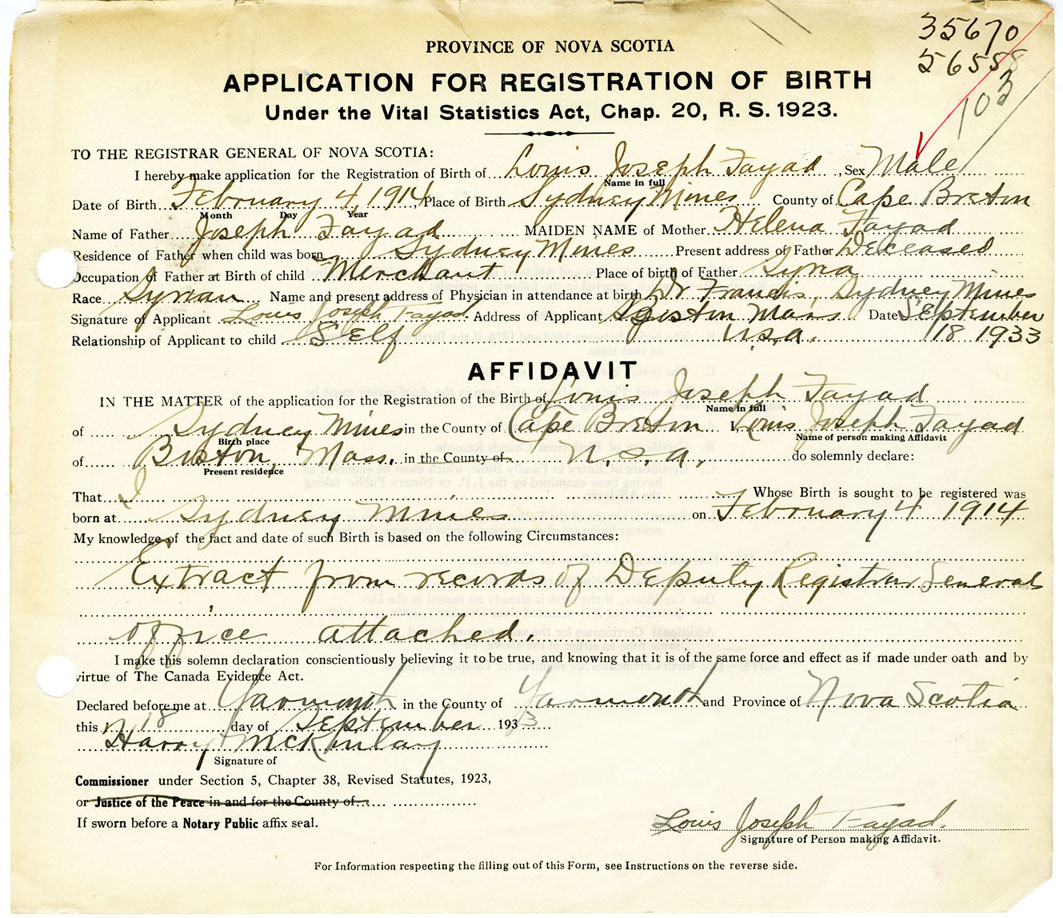 35670
56558
103
PROVINCE OF NOVA SCOTIA
APPLICATION FOR REGISTRATION OF BIRTH
Under the Vital Statistics Act, Chap. 20, R. S. 1923.
TO THE REGISTRAR GENERAL OF NOVA SCOTIA:
I hereby make application for the Registration of Birth of Louis Joseph Fayad, Sex Male
Name in full
Date of Birth February 4, 1914, Place of Birth Sydney Mines County of Cape Breton
Month Day Year
Name of Father Joseph Fayad MAIDEN NAME of Mother Helena Fayad
Residence of Father when child was born Sydney Mines Present address of Father Deceased
Occupation of Father at Birth of child Merchant Place of birth of Father Syria
Race Syrian Name and present address of Physician in attendance at birth Dr Francis, Sydney Mines
Signature of Applicant Louis Joseph Fayad. Address of Applicant Boston Mass Date September
Relationship of Applicant to child Self U.S.A. 18 1933
AFFIDAVIT
IN THE MATTER of the application for the Registration of the Birth of Louis Joseph Fayad
Name in full
of Sydney Mines in the County of Cape Breton I, Louis Joseph Fayad
Birth place Name of person making Affidavit
of Boston, Mass. in the County of U.S.A. do solemnly declare:
Present residence
That I Whose Birth is sought to be registered was
born at Sydney Mines on February 4 1914
My knowledge of the fact and date of such Birth is based on the following Circumstances:
Extract from records of Deputy Registrar General
office attached.
I make this solemn declaration conscientiously believing it to be true, and knowing that it is of the same force and effect as if made under oath and by
virtue of The Canada Evidence Act.
Declared before me at Yarmouth in the County of Yarmouth and Province of Nova Scotia
this 18 day of September 1933
Harry McKinlay
Signature of
Commissioner under Section 5, Chapter 38, Revised Statutes, 1923,
or Justice of the Peace in and for the County of
If sworn before a Notary Public affix seal.
Louis Joseph Fayad.
Signature of Person making Affidavit.
For Information respecting the filling out of this Form, see Instructions on the reverse side.